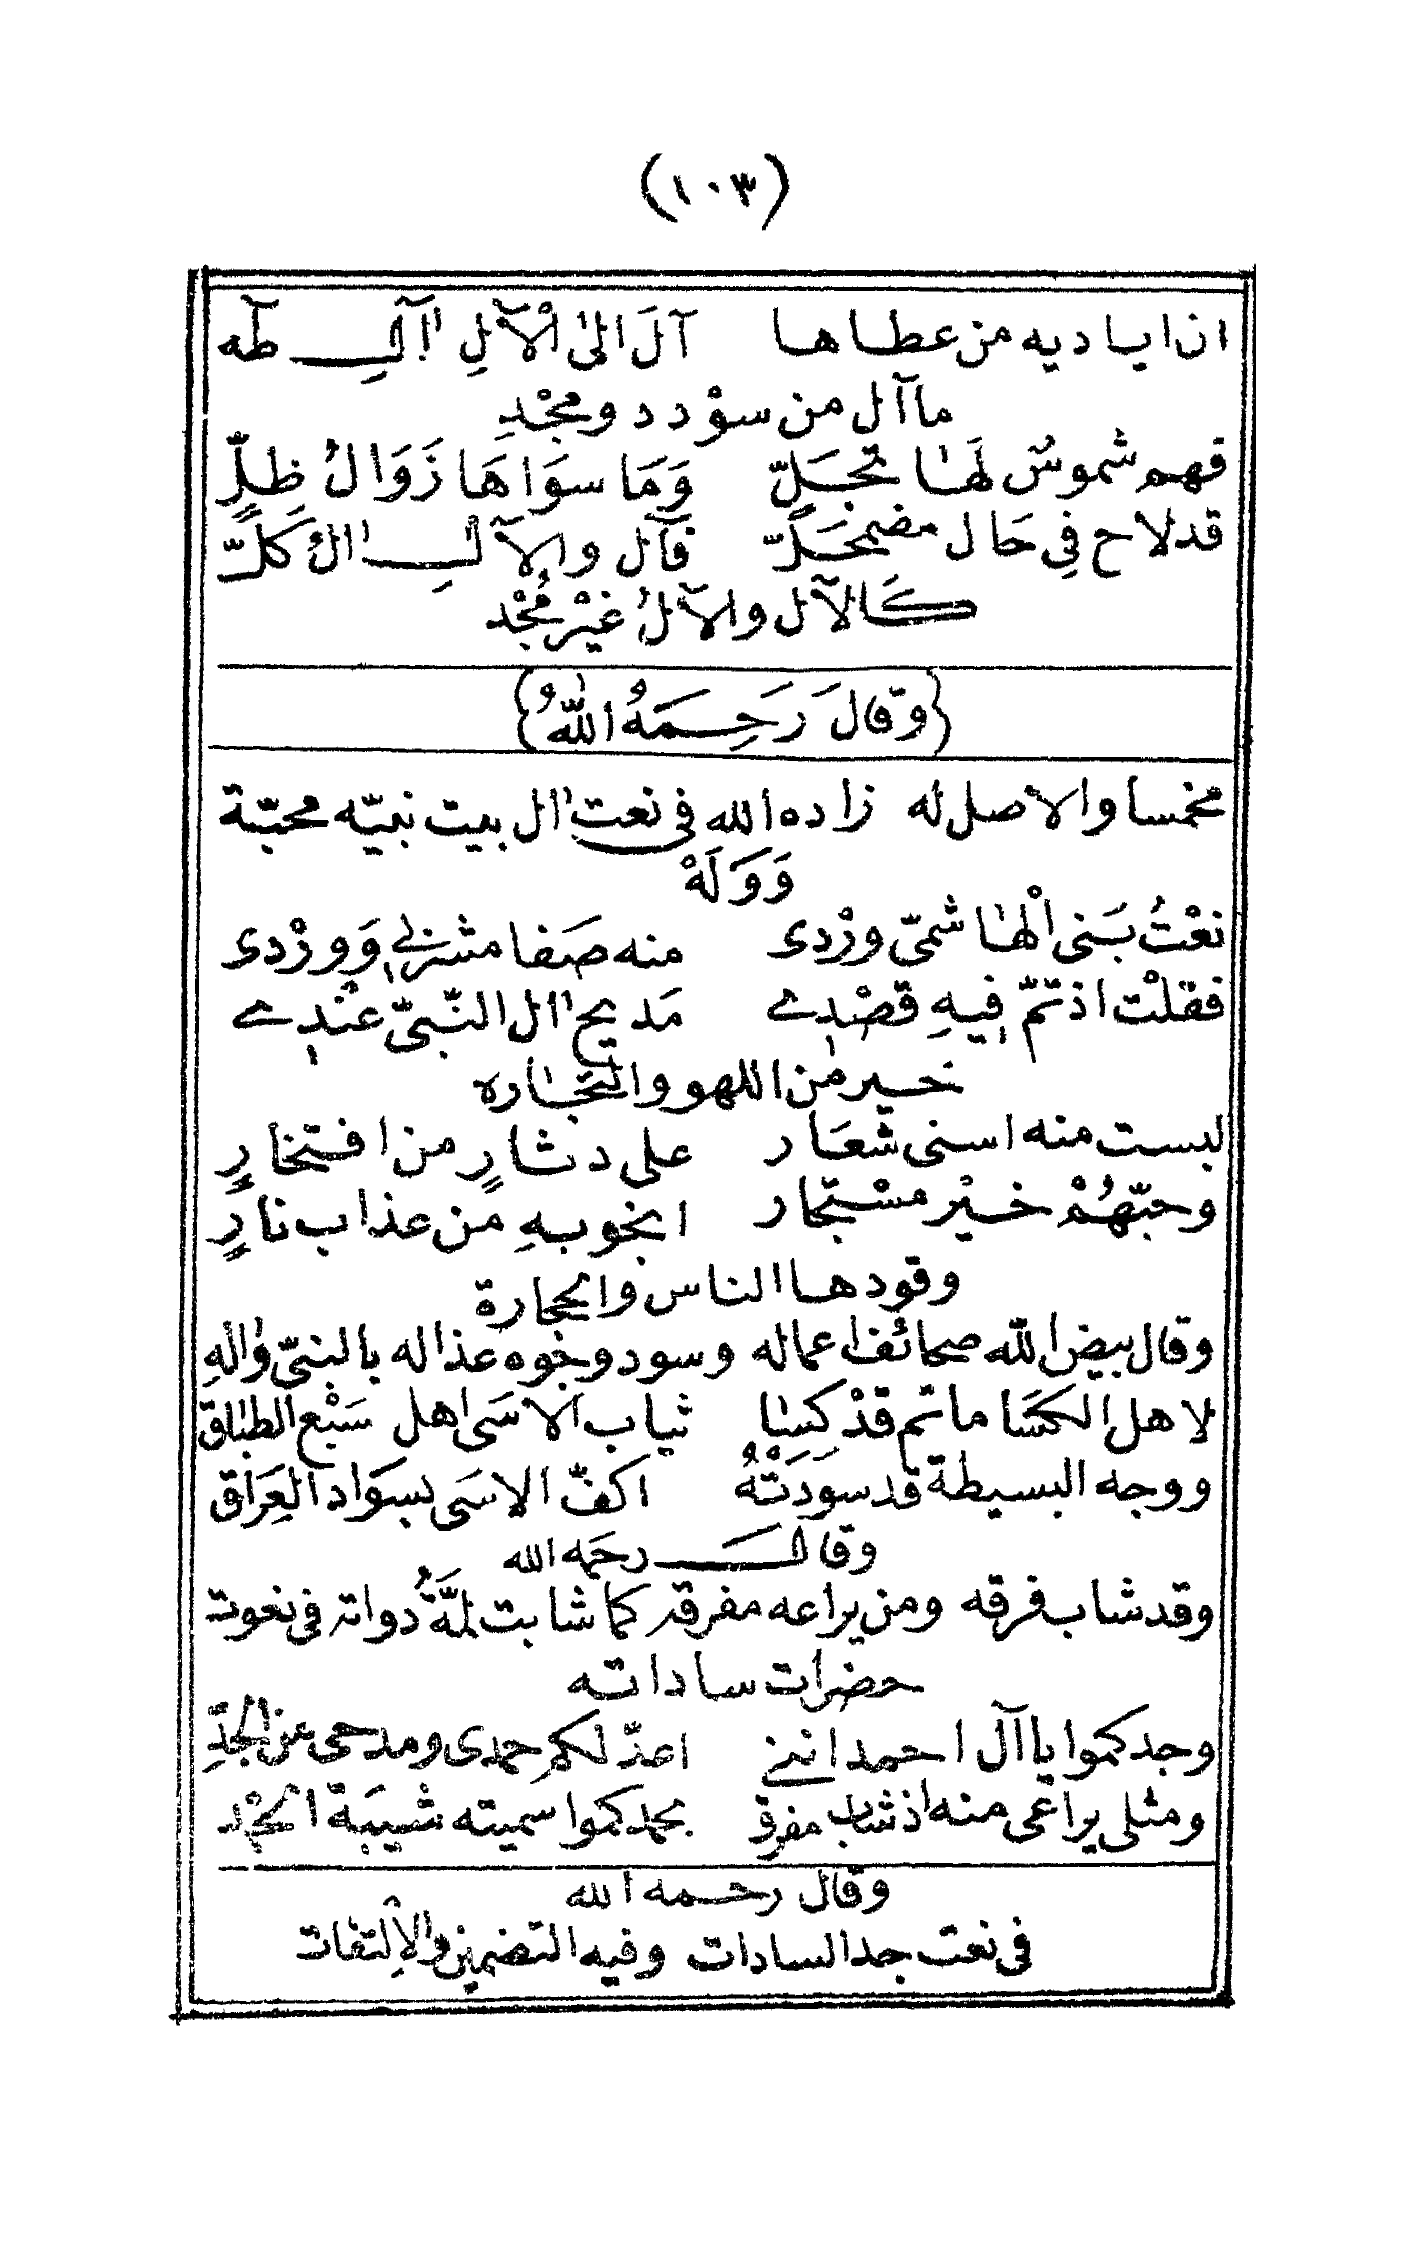 (١٠٣)
ان اياديه من عطاها آلَ الىٰ الْآلِ اٰل طٰه
ما آل من سوْدد ومجْدِ
فهم شموسٌ لَهٰا تجَلّ وَمَا سوَاهَا زَوَالُ ظِلٍّ
قد لاح فِي حَال مضمحَلّ فآل والآل الُ كلّ
كالآل والآلُ غيْر مُجْد
{وقالَ رَحِمَهُ اللهُ}
مخمسا والاصل له زاده الله في نعت اٰل بيت نبيّه محبّة
وَوَلَهْ
نعْتُ بَنى الْهٰاشمىّ ورْدى منه صَفا مشربى وَورْدى
فقلْت اذ تمّ فيهِ قصْدي مَديح اٰل النّبىّ عنْدي
خير من اللهو والتجٰاره
لبست منه اسنى شعَار على دثارٍ من افتخارٍ
وحبّهُمْ خيْر مسْتجار انجو بهِ من عذاب نارٍ
وقودها الناس والحجارة
وقال بيض الله صحائف اعماله وسود وجوه عذاله بالنبىّ واٰلهِ
لاهل الكسَا ماتم قدْ كسٰا ثياب الاَسَى اهل سَبْع الطبٰاق
ووجه البسيطة قد سودَتْهُ اكفّ الاسَى بسوَاد العِرَاق
وقال رحمه الله
وقد شاب فرقه ومن يراعه مفرقه كما شابت لمَّةُ دواته في نعوت
حضرات ساداته
وجدكموا يا آل احمد اننى اعدّ لكم حمدى ومدحى عن الجدِّ
ومثلى يراعى منه اذ شاب مفرق بحمدكموا سميته شيبَة الحمْد
وقال رحمه الله
في نعت جد السادات وفيه التضمين والاِلتفات